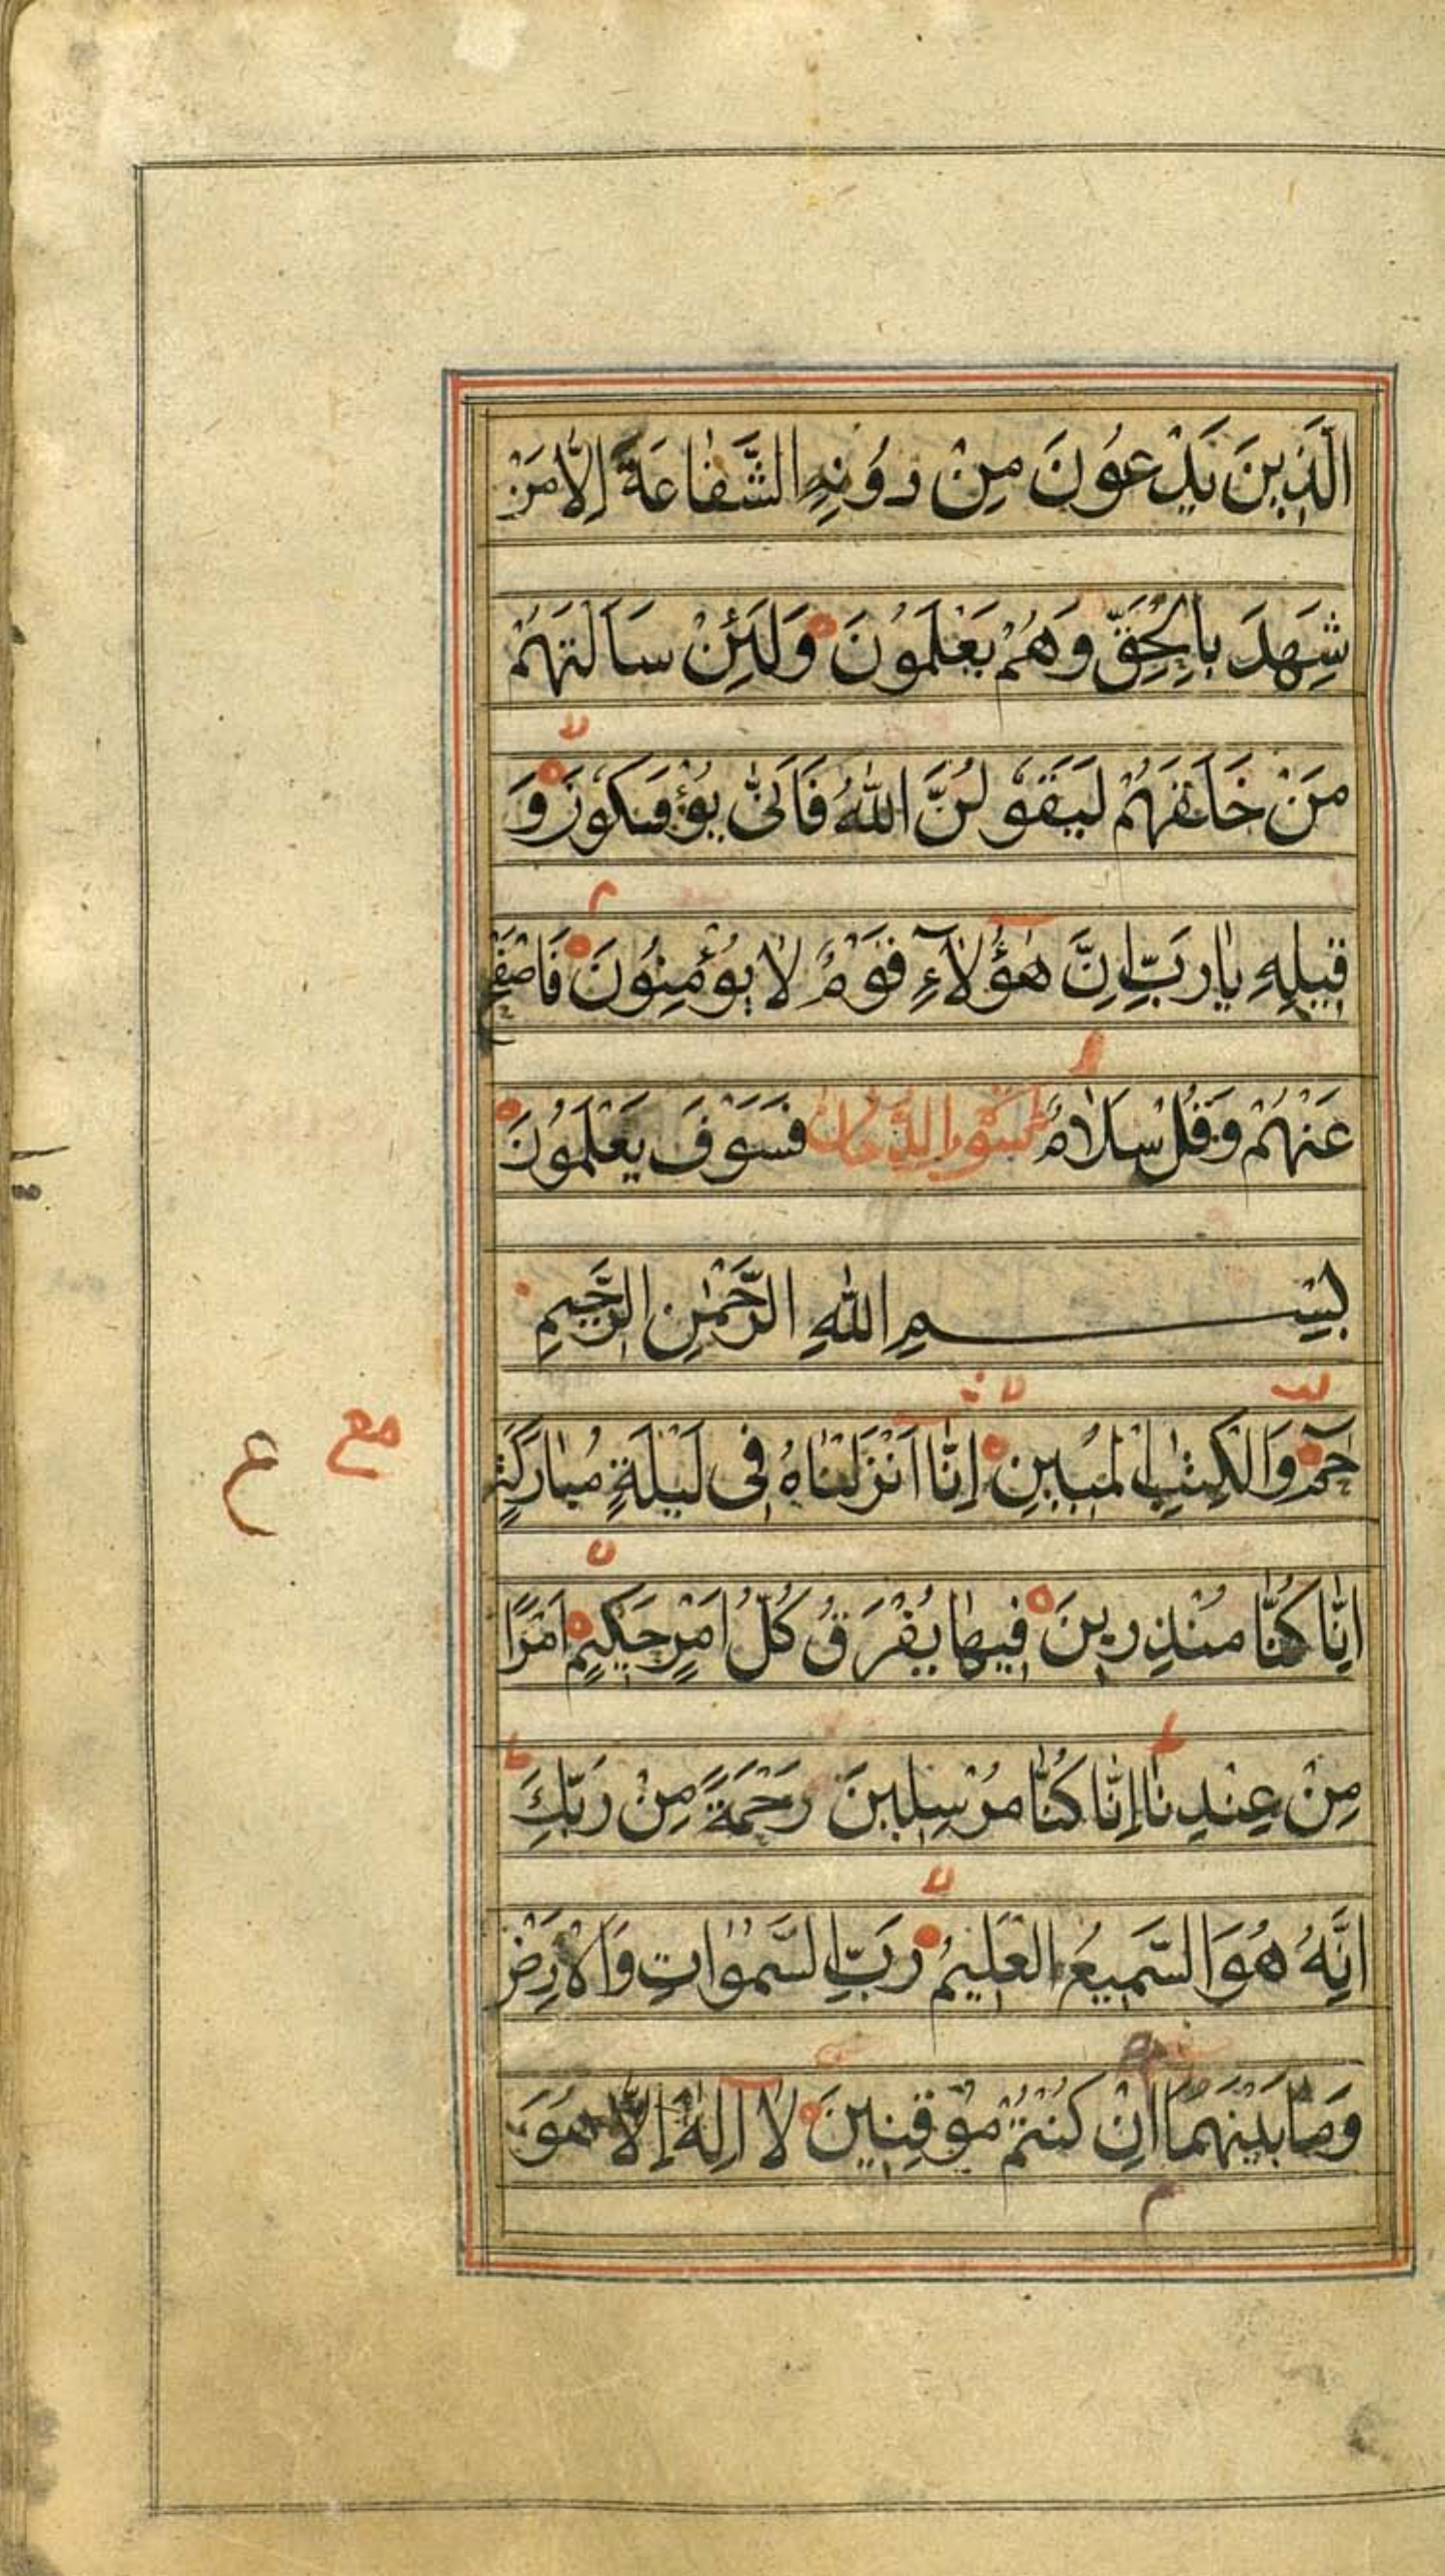 الَّذِينَ يَدْعُونَ مِنْ دُونِهِ الشَّفَاعَةَ إِلَّا مَنْ
شَهِدَ بِالْحَقِّ وَهُمْ يَعْلَمُونَ وَلَئِنْ سَاَلْتَهُمْ
مَنْ خَلَقَهُمْ لَيَقُولُنَّ اللّٰهُ فَاَنّٰى يُؤْفَكُونَ وَ
قِيلِهِ يَا رَبِّ اِنَّ هٰؤُلَآءِ قَوْمٌ لَا يُؤْمِنُونَ فَاصْفَحْ
عَنْهُمْ وَقُلْ سَلَامٌ سورة الدخان فَسَوْفَ يَعْلَمُونَ
بِسْمِ اللّٰهِ الرَّحْمٰنِ الرَّحِيمِ
حٰمٓ وَالْكِتٰبِ الْمُبِينِ اِنَّا اَنْزَلْنَاهُ فِى لَيْلَةٍ مُبَارَكَةٍ
اِنَّا كُنَّا مُنْذِرِينَ فِيهَا يُفْرَقُ كُلُّ اَمْرٍ حَكِيمٍ اَمْرًا
مع ع
مِنْ عِنْدِنَا اِنَّا كُنَّا مُرْسِلِينَ رَحْمَةً مِنْ رَبِّكَ
اِنَّهُ هُوَ السَّمِيعُ الْعَلِيمُ رَبِّ السَّمٰوَاتِ وَالْاَرْضِ
وَمَا بَيْنَهُمَا اِنْ كُنْتُمْ مُوقِنِينَ لَا اِلٰهَ اِلَّا هُوَ